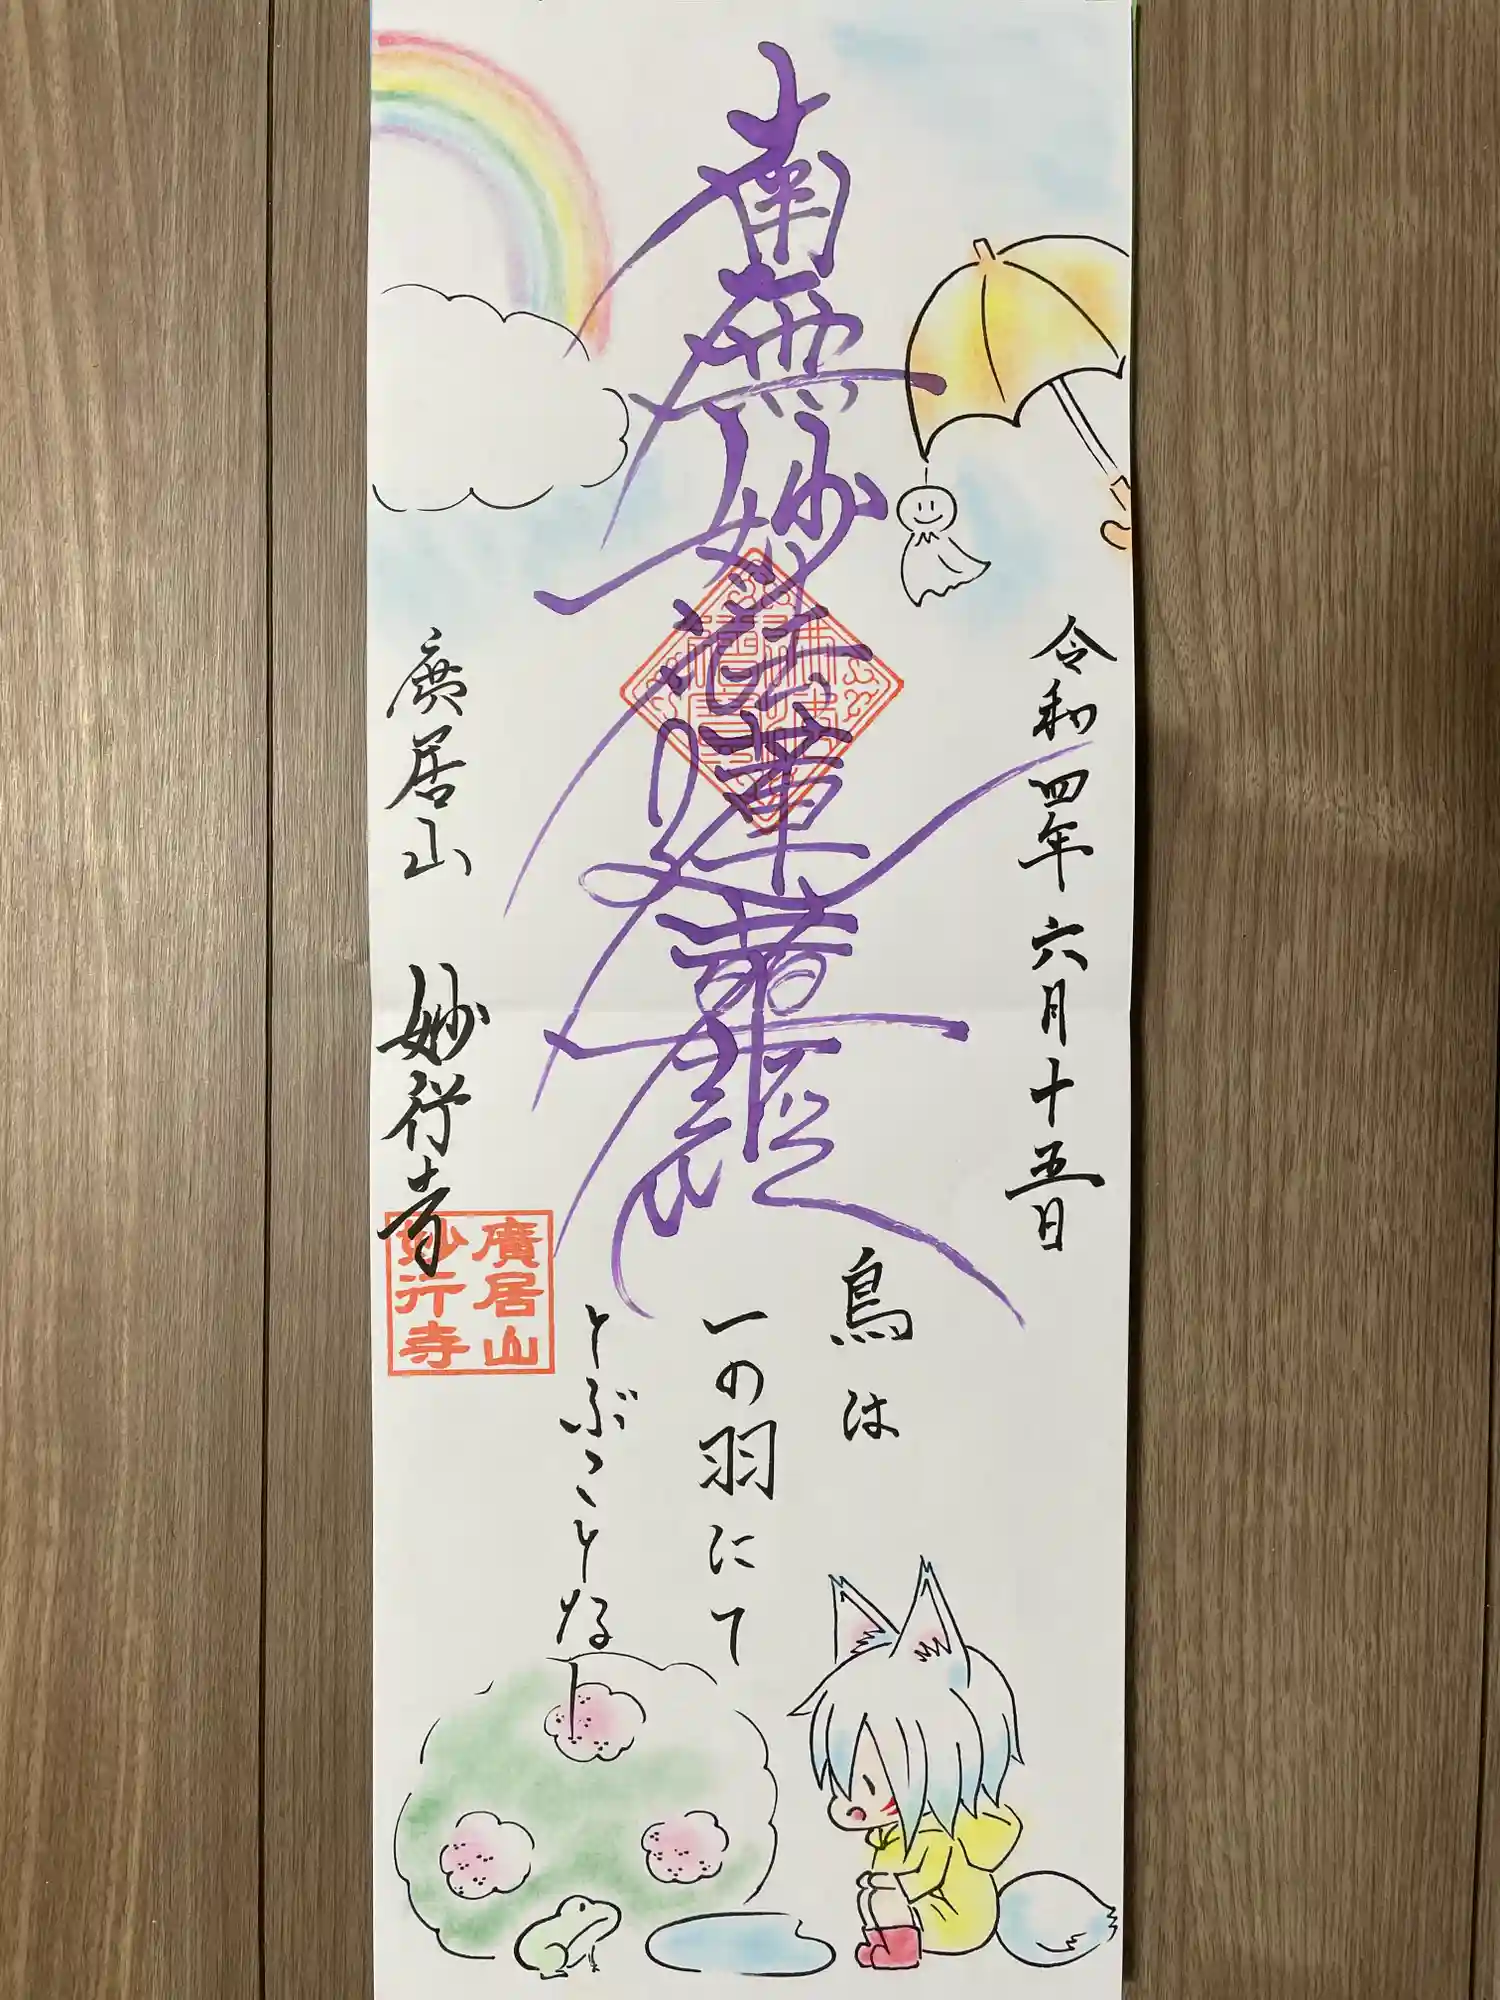 令和四年六月十五日
南無妙法蓮華經
鳥は
一の羽にて
とぶことなし
廣居山 妙行寺
廣居山
妙行寺